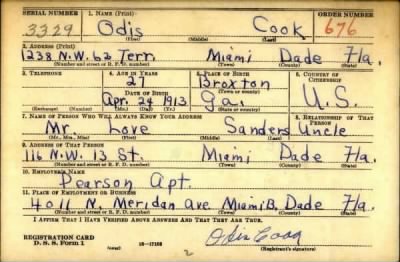 SERIAL NUMBER 1. NAME (Print) ORDER NUMBER
3329 Odis Cook 676
(First) (Middle) (Last)
2. ADDRESS (Print)
1238 N.W. 62 Terr. Miami Dade Fla.
(Number and street or R. F. D. number) (Town) (County) (State)
3. TELEPHONE 4. AGE IN YEARS 5. PLACE OF BIRTH 6. COUNTRY OF CITIZENSHIP
27 Broxton
DATE OF BIRTH (Town or county)
Apr. 24 1913 Ga. U.S.
(Exchange) (Number) (Mo.) (Day) (Yr.) (State or country)
7. NAME OF PERSON WHO WILL ALWAYS KNOW YOUR ADDRESS 8. RELATIONSHIP OF THAT PERSON
Mr. Love Sanders Uncle
(Mr., Mrs., Miss) (First) (Middle) (Last)
9. ADDRESS OF THAT PERSON
116 N.W. 13 St. Miami Dade Fla.
(Number and street or R. F. D. number) (Town) (County) (State)
10. EMPLOYER'S NAME
Pearson Apt.
11. PLACE OF EMPLOYMENT OR BUSINESS
4011 N. Meridan Ave Miami B. Dade Fla.
(Number and street or R. F. D. number) (Town) (County) (State)
I AFFIRM THAT I HAVE VERIFIED ABOVE ANSWERS AND THAT THEY ARE TRUE.
REGISTRATION CARD
D. S. S. Form 1 16-17105 Odis Cook
(Registrant's signature)
2